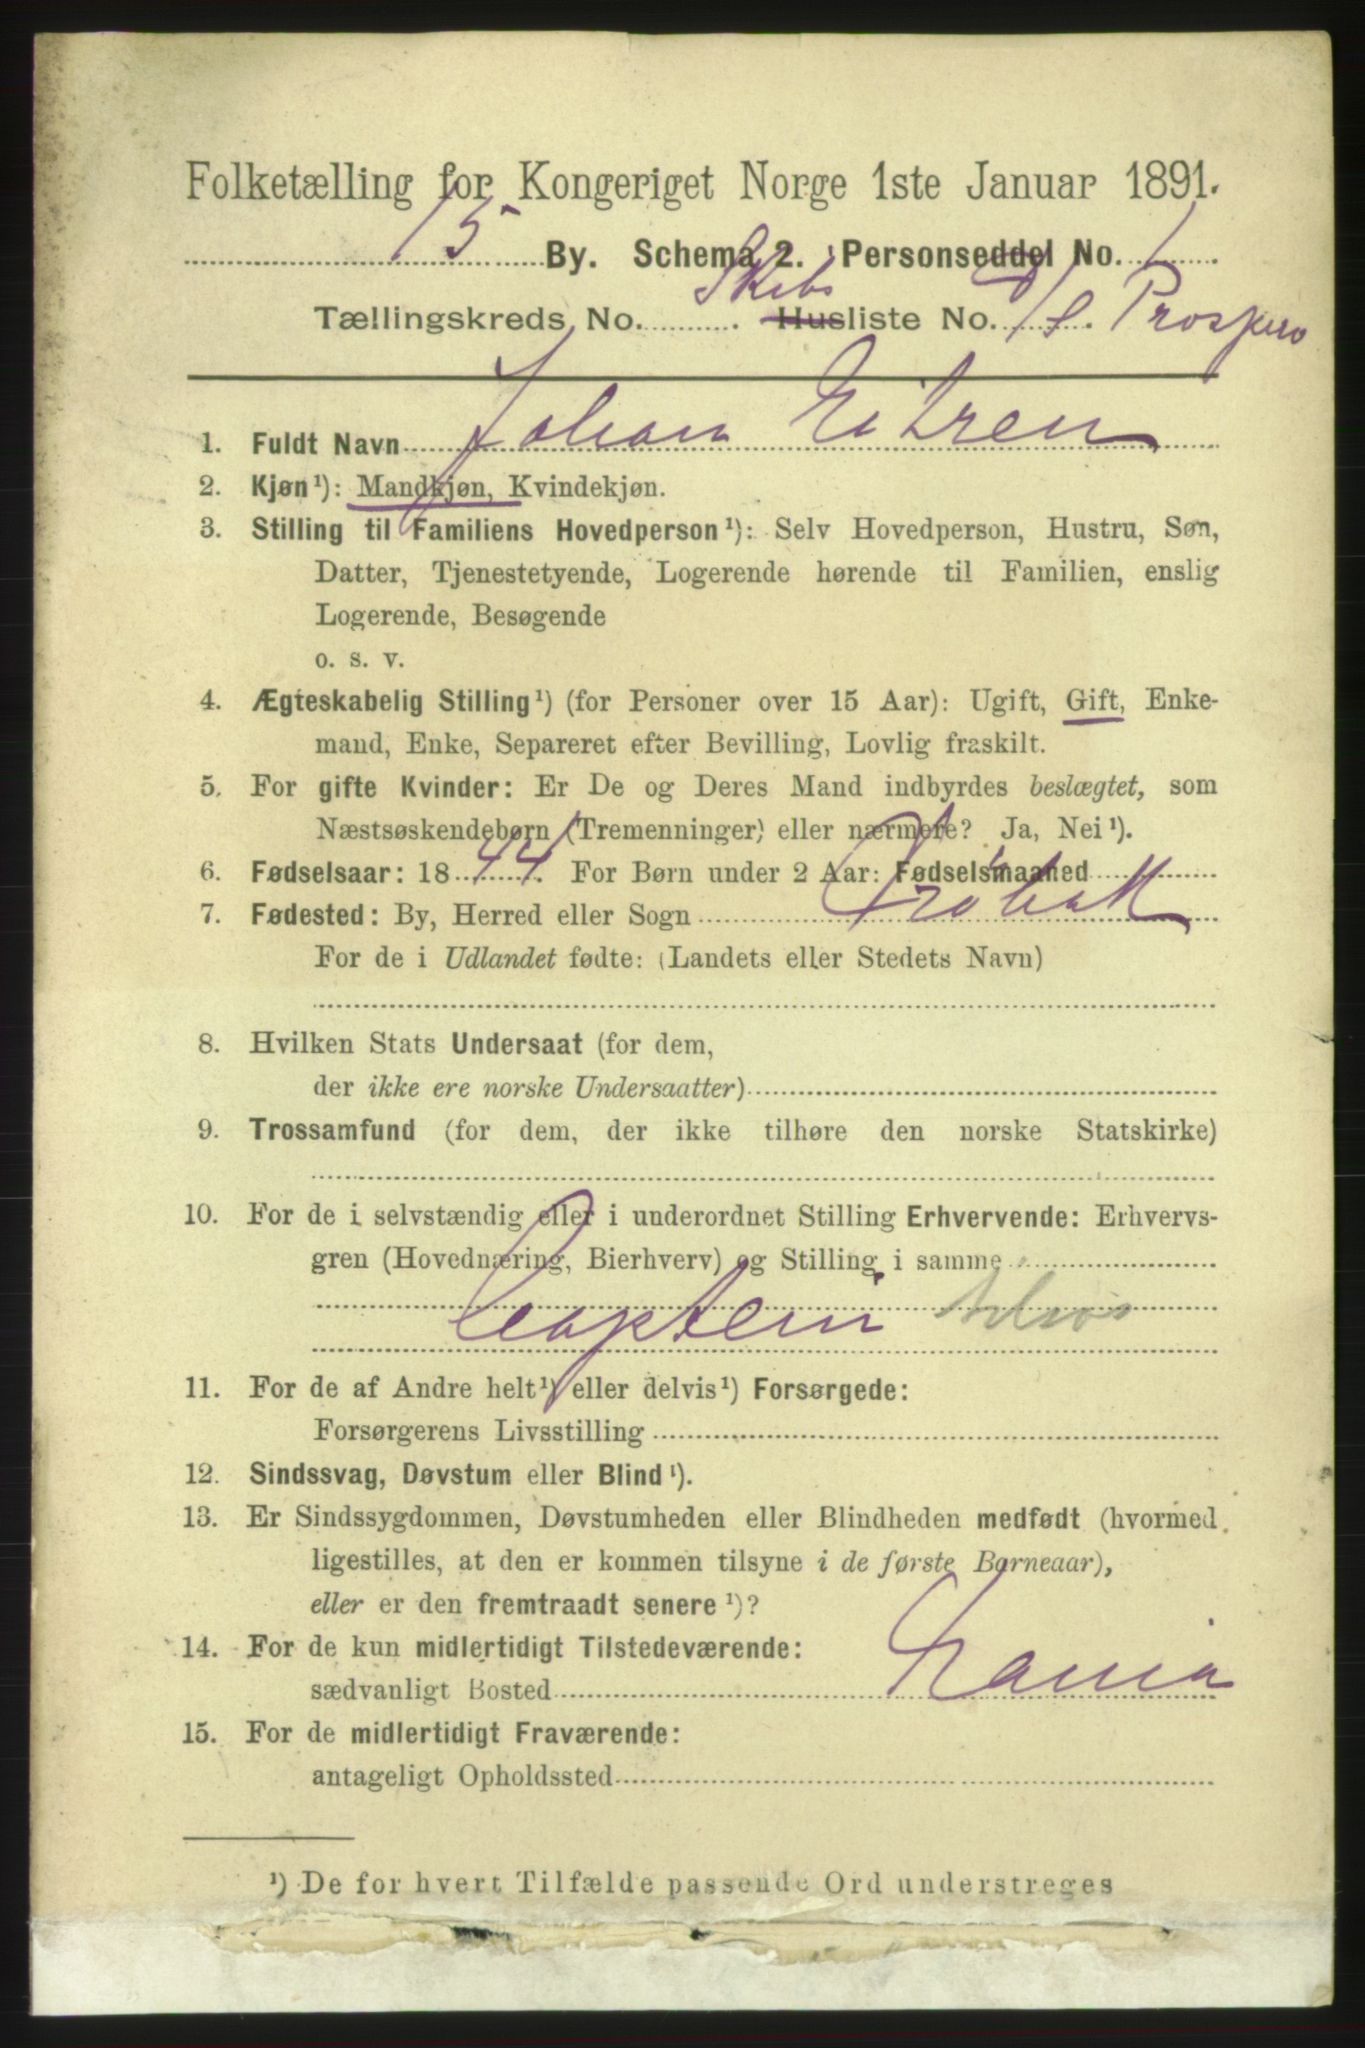 Folketælling for Kongeriget Norge 1ste Januar 1891.
15 By. Schema 2. Personseddel No. 1
Tællingskreds No. Skibs Husliste No. D/S. Prospero
1. Fuldt Navn Johan Eitzen
2. Kjøn¹): Mandkjøn, Kvindekjøn.
3. Stilling til Familiens Hovedperson¹): Selv Hovedperson, Hustru, Søn,
Datter, Tjenestetyende, Logerende hørende til Familien, enslig
Logerende, Besøgende
o. s. v.
4. Ægteskabelig Stilling¹) (for Personer over 15 Aar): Ugift, Gift, Enke-
mand, Enke, Separeret efter Bevilling, Lovlig fraskilt.
5. For gifte Kvinder: Er De og Deres Mand indbyrdes beslægtet, som
Næstsøskendebørn (Tremenninger) eller nærmere? Ja, Nei¹).
6. Fødselsaar: 1844. For Børn under 2 Aar: Fødselsmaaned
7. Fødested: By, Herred eller Sogn Drøbak
For de i Udlandet fødte: (Landets eller Stedets Navn)
8. Hvilken Stats Undersaat (for dem,
der ikke ere norske Undersaatter)
9. Trossamfund (for dem, der ikke tilhøre den norske Statskirke)
10. For de i selvstændig eller i underordnet Stilling Erhvervende: Erhvervs-
gren (Hovednæring, Bierhverv) og Stilling i samme
Captein
11. For de af Andre helt¹) eller delvis¹) Forsørgede:
Forsørgerens Livsstilling
12. Sindssvag, Døvstum eller Blind¹).
13. Er Sindssygdommen, Døvstumheden eller Blindheden medfødt (hvormed
ligestilles, at den er kommen tilsyne i de første Barneaar),
eller er den fremtraadt senere¹)?
14. For de kun midlertidigt Tilstedeværende:
sædvanligt Bosted Xania
15. For de midlertidigt Fraværende:
antageligt Opholdssted
¹) De for hvert Tilfælde passende Ord understreges